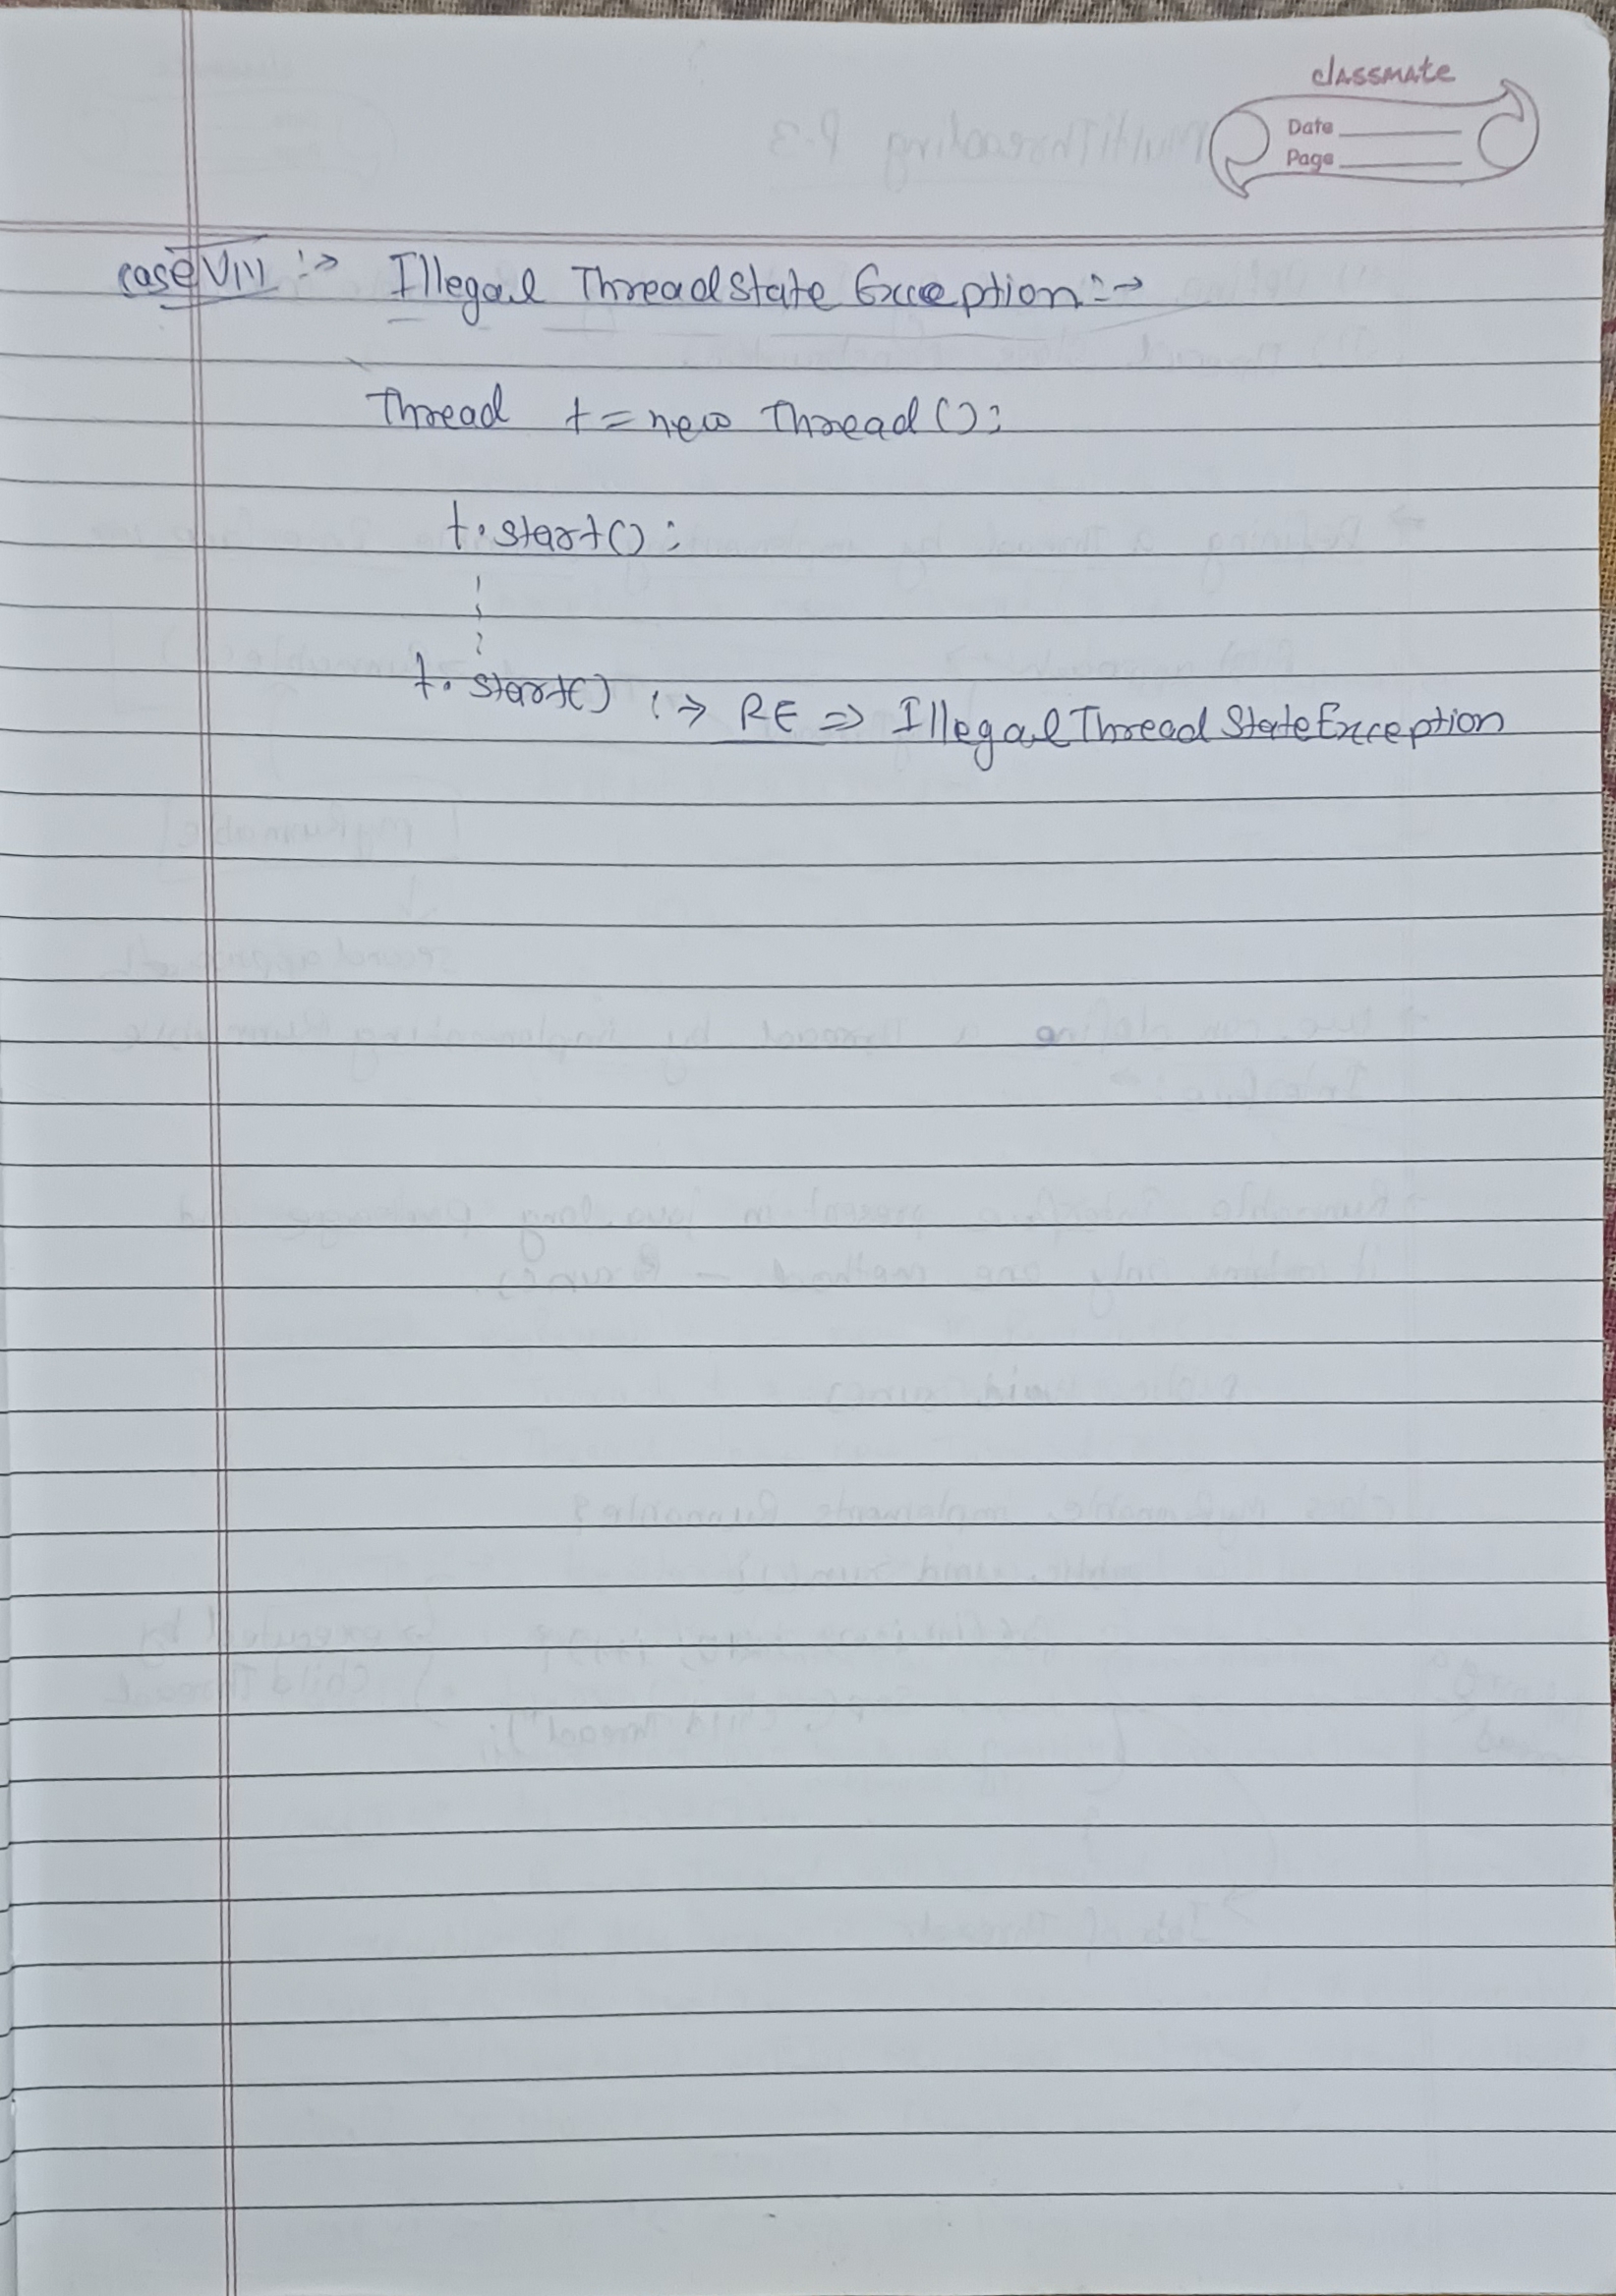 classmate
Date
Page
case VIII :→ Illegal ThreadState Exception :→
Thread t = new Thread();
t.start();
t.start() :→ RE ⇒ IllegalThreadStateException